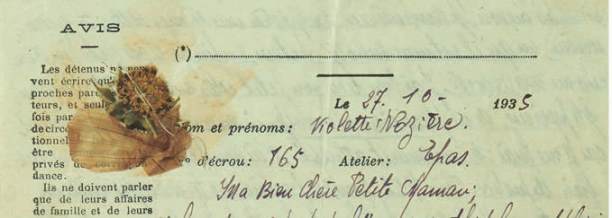 AVIS
(*)
Les détenus ne
vent écrire qu'
proches pare
teurs, et seule
fois par
de circo
tionnel
être
privés de
dance.
Ils ne doivent parler
que de leurs affaires
de famille et de leurs
Le 27-10- 1935
Nom et prénoms: Violette Nozière.
N° d'écrou: 165 Atelier: Epas.
Ma Bien Chère Petite Maman,